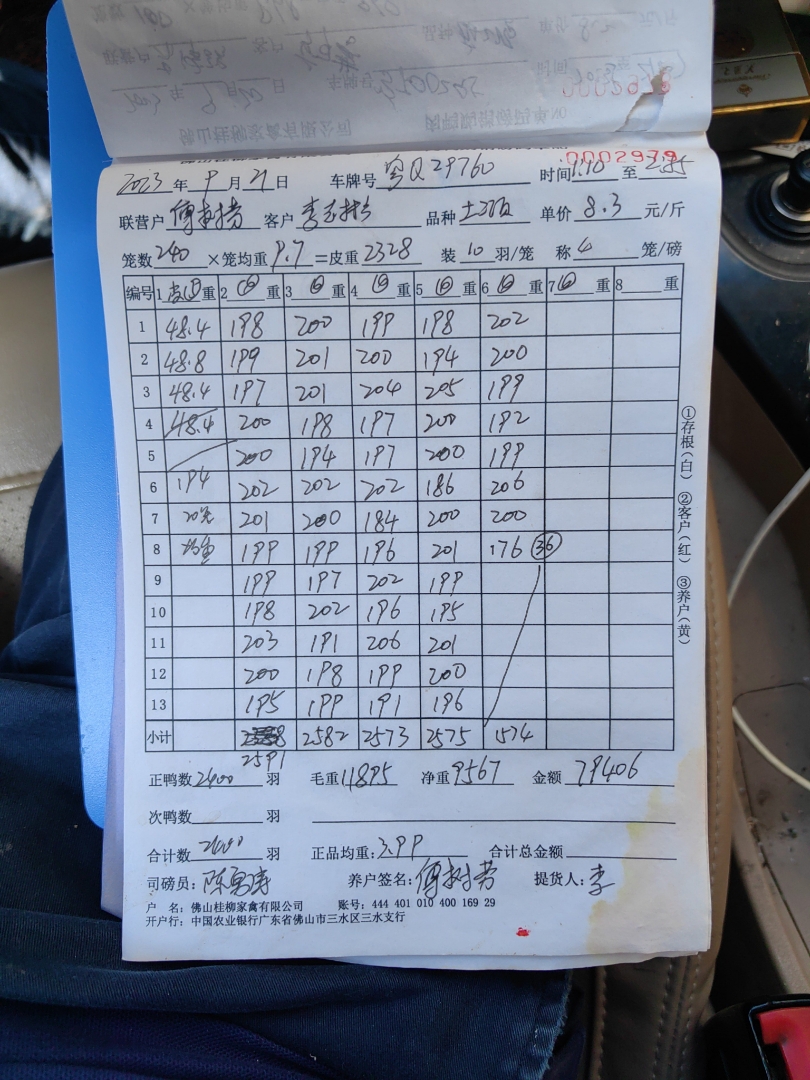 0002979
2023年9月21日 车牌号 粤Q29760 时间1:10至2:35
联营户 傅树劳 客户 李志 品种 土 单价 8.3 元/斤
笼数240×笼均重9.7=皮重2328 装10羽/笼 称4笼/磅
编号 1 皮 重 2 毛 重 3 毛 重 4 毛 重 5 毛 重 6 毛 重 7 毛 重 8 重
1 48.4 198 200 199 198 202
2 48.8 199 201 200 194 200
3 48.4 197 201 204 205 199
4 48.4 200 198 197 200 192
5 200 194 197 200 199
6 194 202 202 202 186 206
7 20 201 200 184 200 200
8 199 199 196 201 176 36
9 199 197 202 199
10 198 202 196 195
11 203 191 206 201
12 200 198 199 200
13 195 199 191 196
小计 2582 2573 2575 1574
2591
正鸭数2400羽 毛重11895 净重9567 金额79406
次鸭数 羽
合计数2400羽 正品均重:3.99 合计总金额
司磅员: 陈勇涛 养户签名: 傅树劳 提货人: 李
户 名: 佛山桂柳家禽有限公司 账号: 444 401 010 400 169 29
开户行: 中国农业银行广东省佛山市三水区三水支行
①存根(白) ②客户(红) ③养户(黄)